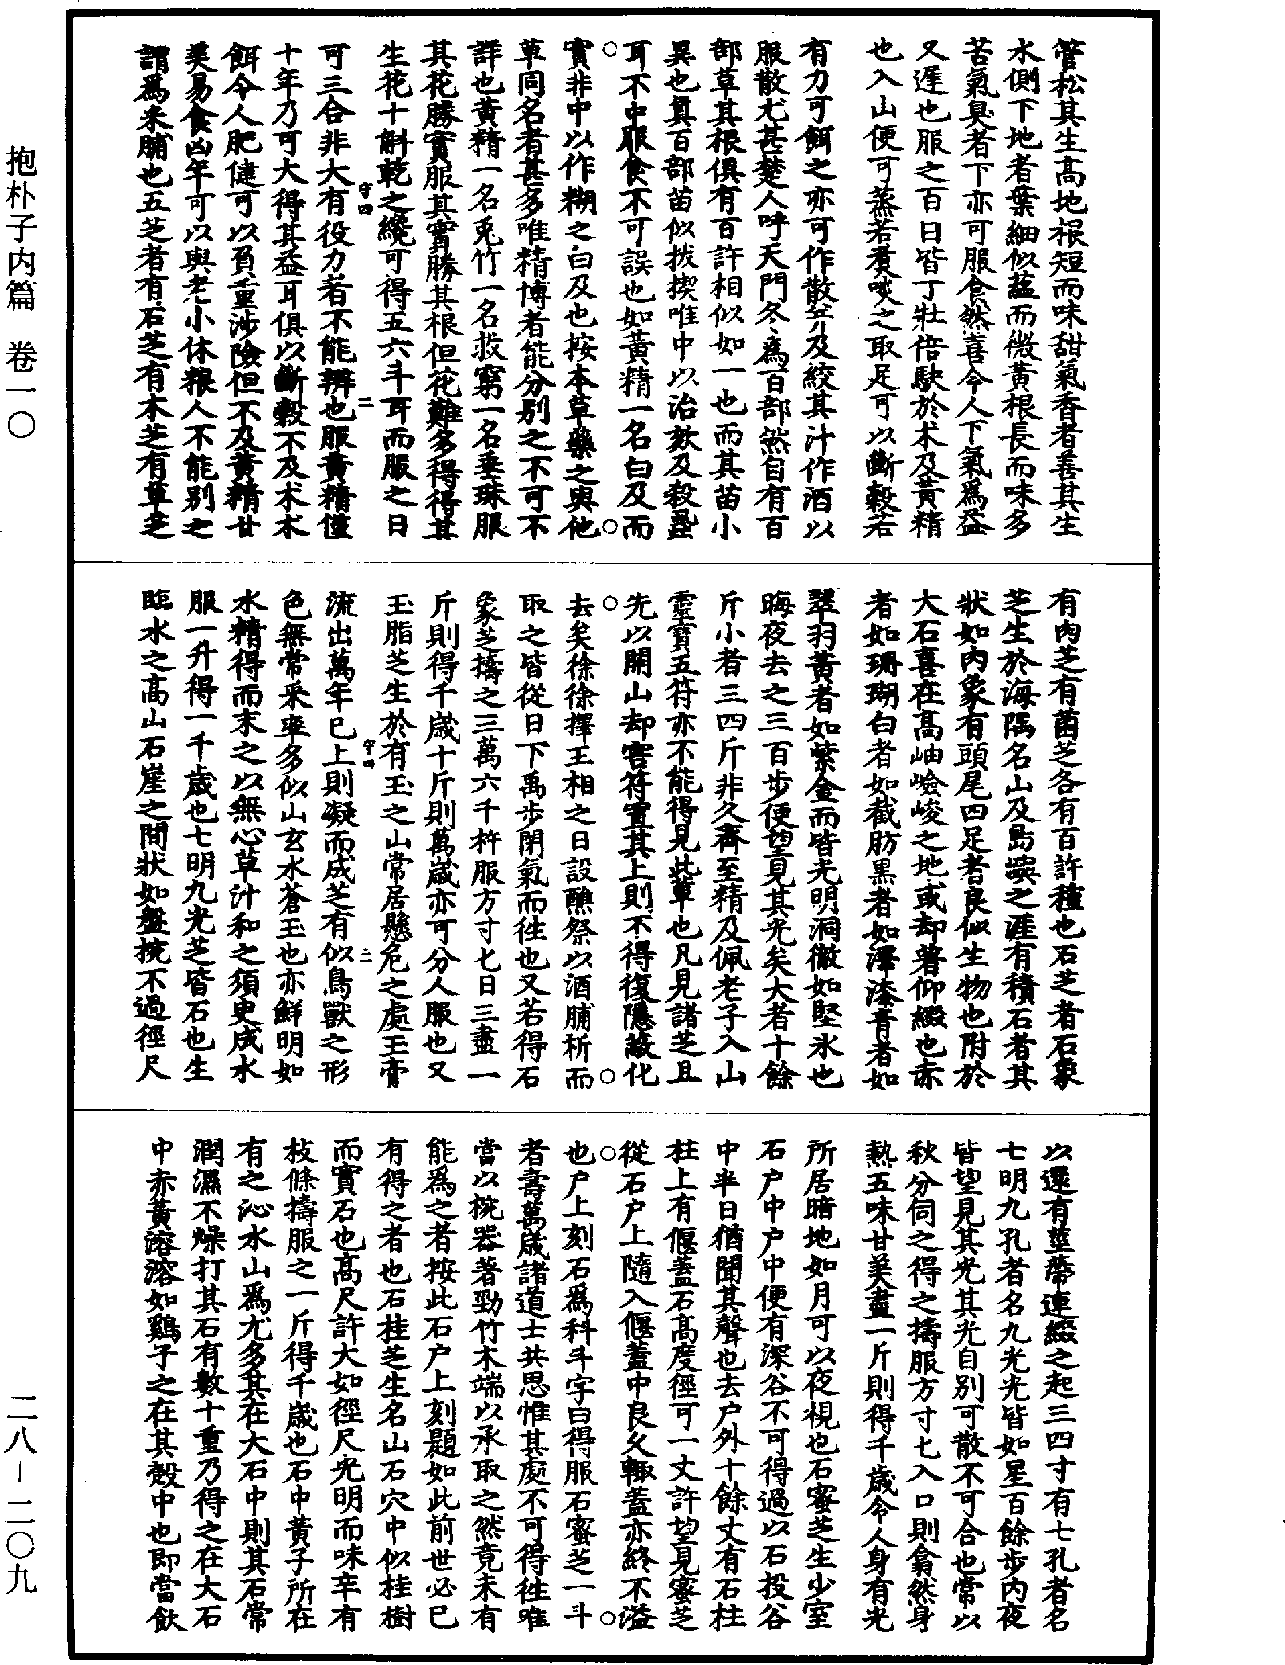 管松其生高地根短而味甜氣香者善其生
水側下地者葉細似蘊而微黃根長而味多
苦氣臭者下亦可服食然喜令人下氣爲益
又遲也服之百日皆丁壯倍駃於术及黃精
也入山便可蒸若煑啖之取足可以斷穀若
有力可餌之亦可作散并及絞其汁作酒以
服散尤甚楚人呼天門冬爲百部然自有百
部草其根俱有百許相似如一也而其苗小
異也真百部苗似拔揳唯中以治欬及殺蝨
耳不中服食不可誤也如黃精一名白及而
實非中以作糊之白及也按本草藥之與他
草同名者甚多唯精博者能分別之不可不
詳也黃精一名兎竹一名救窮一名垂珠服
其花勝實服其實勝其根但花難多得得其
生花十斛乾之纔可得五六斗耳而服之日
可三合非大有役力者不能辨也服黃精僅
十年乃可大得其益耳俱以斷穀不及术术
餌令人肥健可以負重涉險但不及黃精甘
美易食凶年可以與老小休糧人不能別之
謂爲米脯也五芝者有石芝有木芝有草芝
有肉芝有菌芝各有百許種也石芝者石象
芝生於海隅名山及島嶼之涯有積石者其
狀如肉象有頭尾四足者良似生物也附於
大石喜在高岫嶮峻之地或却著仰綴也赤
者如珊瑚白者如截肪黑者如澤漆青者如
翠羽黃者如紫金而皆光明洞徹如堅冰也
晦夜去之三百步便望見其光矣大者十餘
斤小者三四斤非久齋至精及佩老子入山
靈寶五符亦不能得見此輩也凡見諸芝且
先以開山却害符置其上則不得復隱蔽化
去矣徐徐擇王相之日設醮祭以酒脯祈而
取之皆從日下禹步閉氣而徃也又若得石
象芝擣之三萬六千杵服方寸匕日三盡一
斤則得千歲十斤則萬歲亦可分人服也又
玉脂芝生於有玉之山常居懸危之處玉膏
流出萬年已上則凝而成芝有似鳥獸之形
色無常采率多似山玄水蒼玉也亦鮮明如
水精得而末之以無心草汁和之須臾成水
服一升得一千歲也七明九光芝皆石也生
臨水之高山石崖之間狀如盤椀不過徑尺
以還有莖蔕連綴之起三四寸有七孔者名
七明九孔者名九光光皆如星百餘步內夜
皆望見其光其光自別可散不可合也常以
秋分伺之得之擣服方寸匕入口則翕然身
熱五味甘美盡一斤則得千歲令人身有光
所居暗地如月可以夜視也石蜜芝生少室
石户中户中便有深谷不可得過以石投谷
中半日猶聞其聲也去户外十餘丈有石柱
柱上有偃蓋石高度徑可一丈許望見蜜芝
從石户上隨入偃蓋中良久輙蓋亦終不溢
也户上刻石爲科斗字曰得服石蜜芝一斗
者壽萬歲諸道士共思惟其處不可得徃唯
當以椀器著勁竹木端以承取之然竟未有
能爲之者按此石户上刻題如此前世必已
有得之者也石桂芝生名山石穴中似桂樹
而實石也高尺許大如徑尺光明而味辛有
枝條擣服之一斤得千歲也石中黃子所在
有之沁水山爲尤多其在大石中則其石常
潤濕不燥打其石有數十重乃得之在大石
中赤黃溶溶如鷄子之在其殼中也即當飲
守四 二
守四 三
抱朴子內篇 卷一〇
二八—二〇九